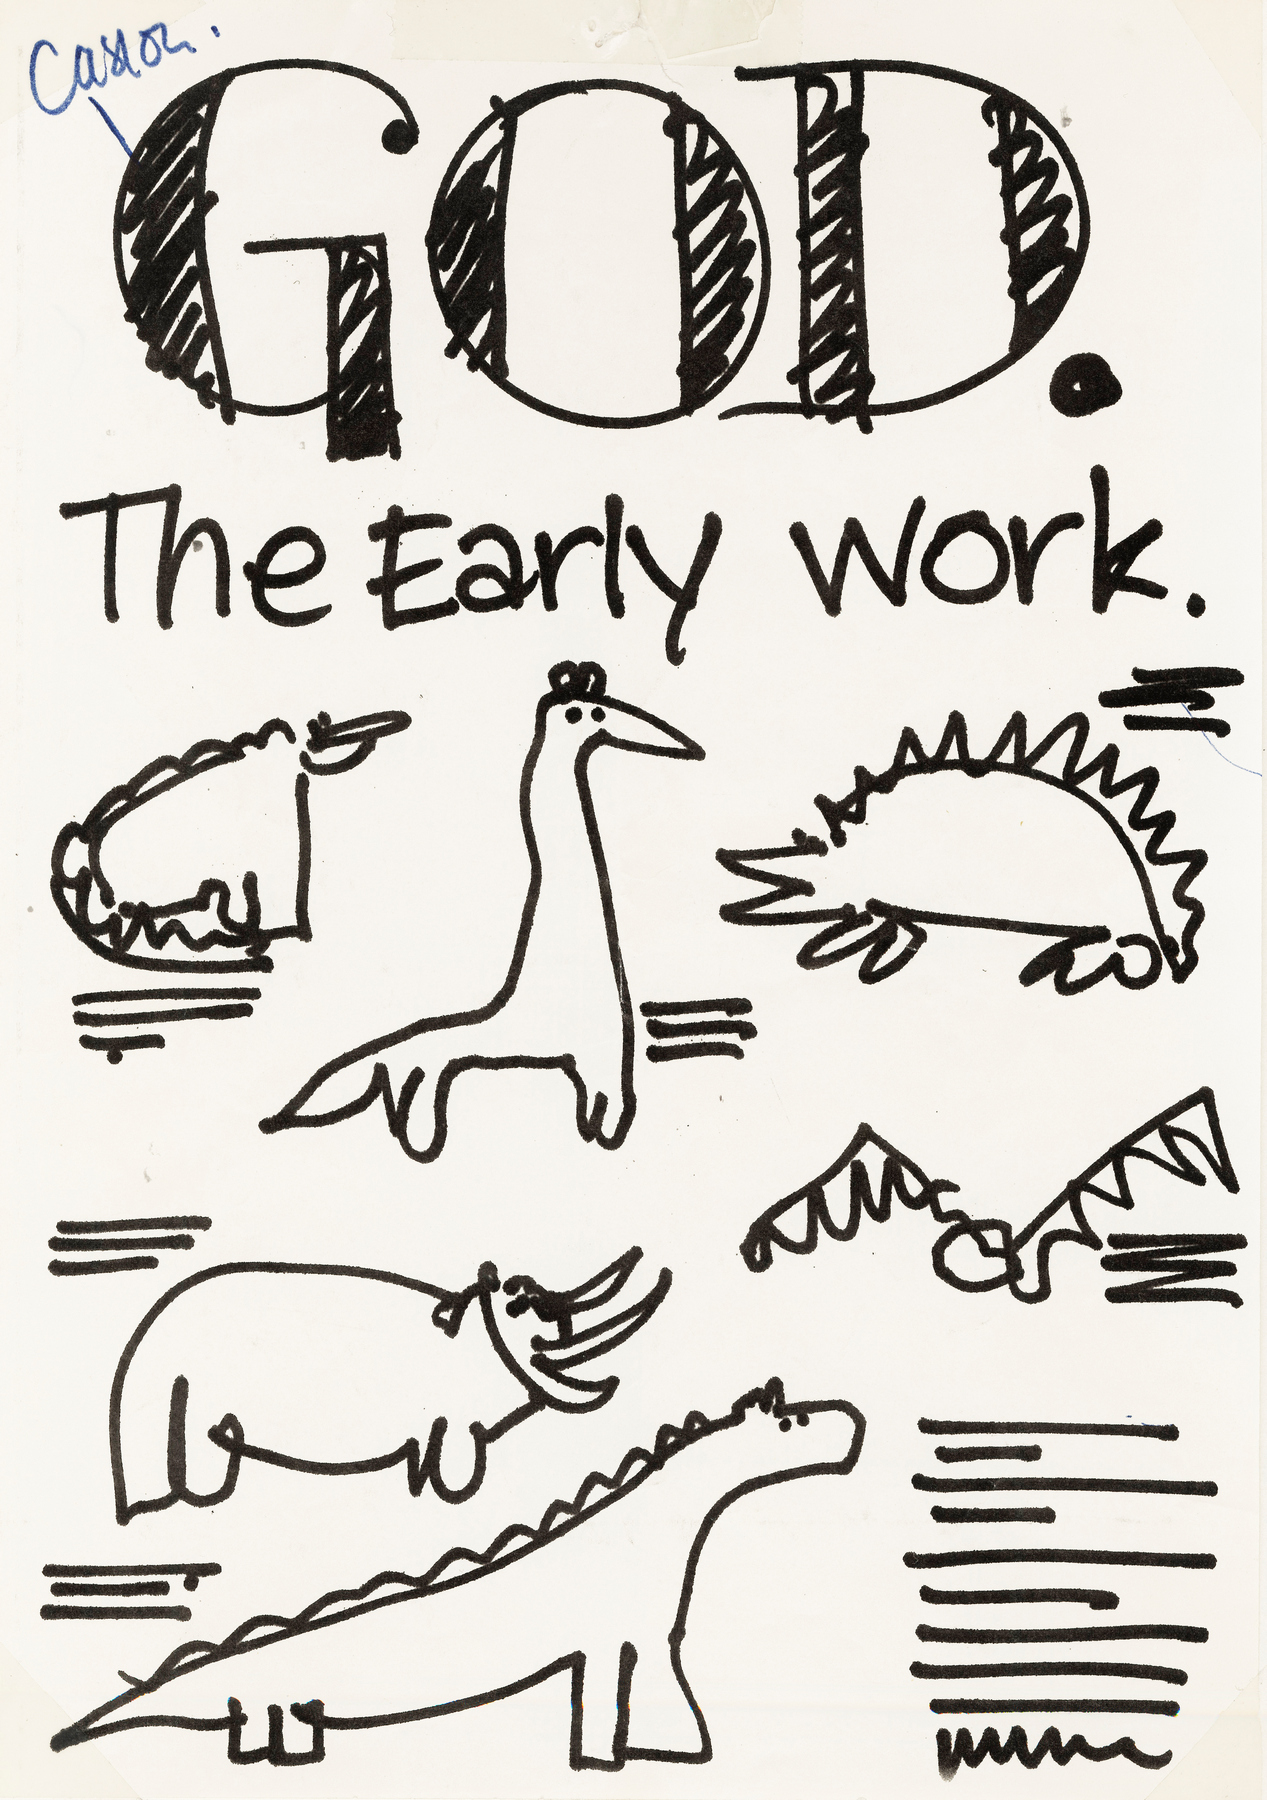 Caslon.
GOD.
The Early Work.